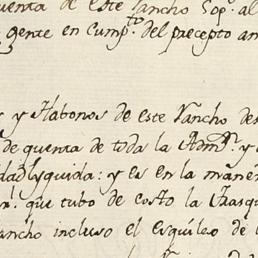 uenta de este Rancho Sop.e al
gente en cump.to del precepto an
y Habonos de este Rancho des
de quenta de toda la Adm.n y
dad lyquida: y es en la maner
que tubo de costo la Trasq
ancho incluso el esquileo de